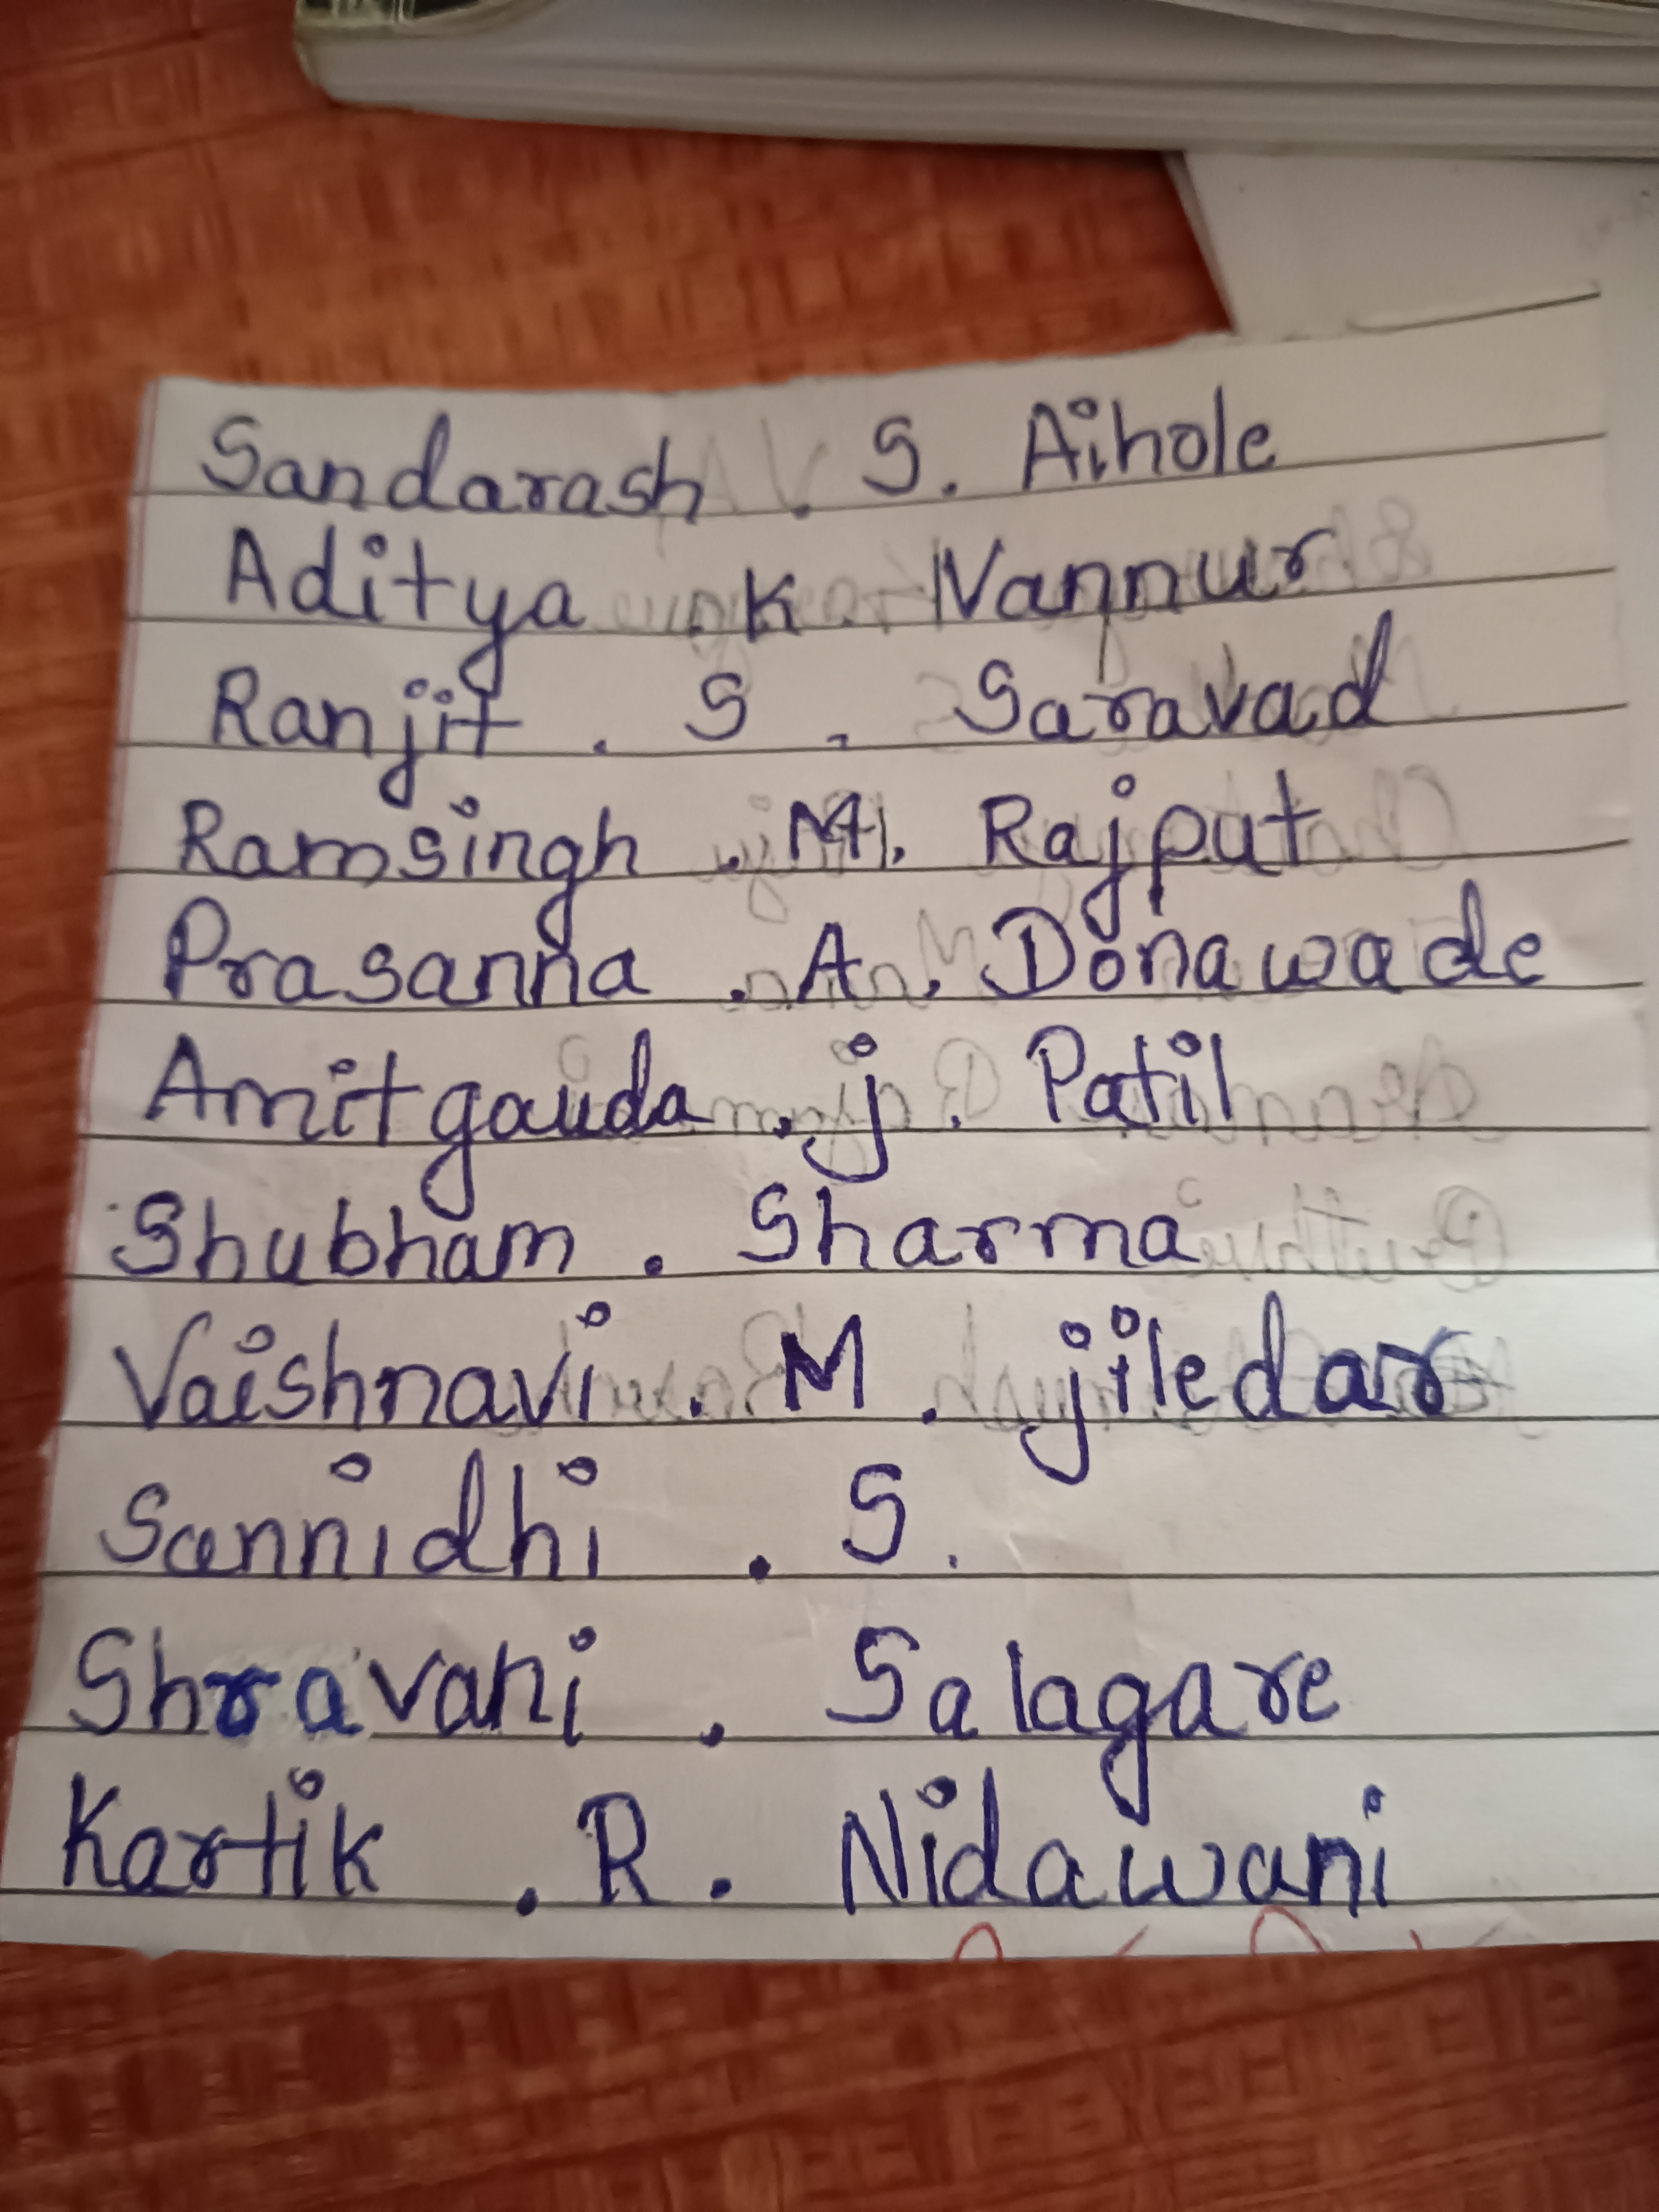 Sandarash . S. Aihole
Aditya . K Nannur
Ranjit . S . Saravad
Ramsingh . M. Rajput
Prasanna . A. Donawade
Amitgauda . j. Patil
Shubham . Sharma
Vaishnavi . M . jiledar
Sannidhi . S.
Shravani . Salagare
Kartik . R. Nidawani